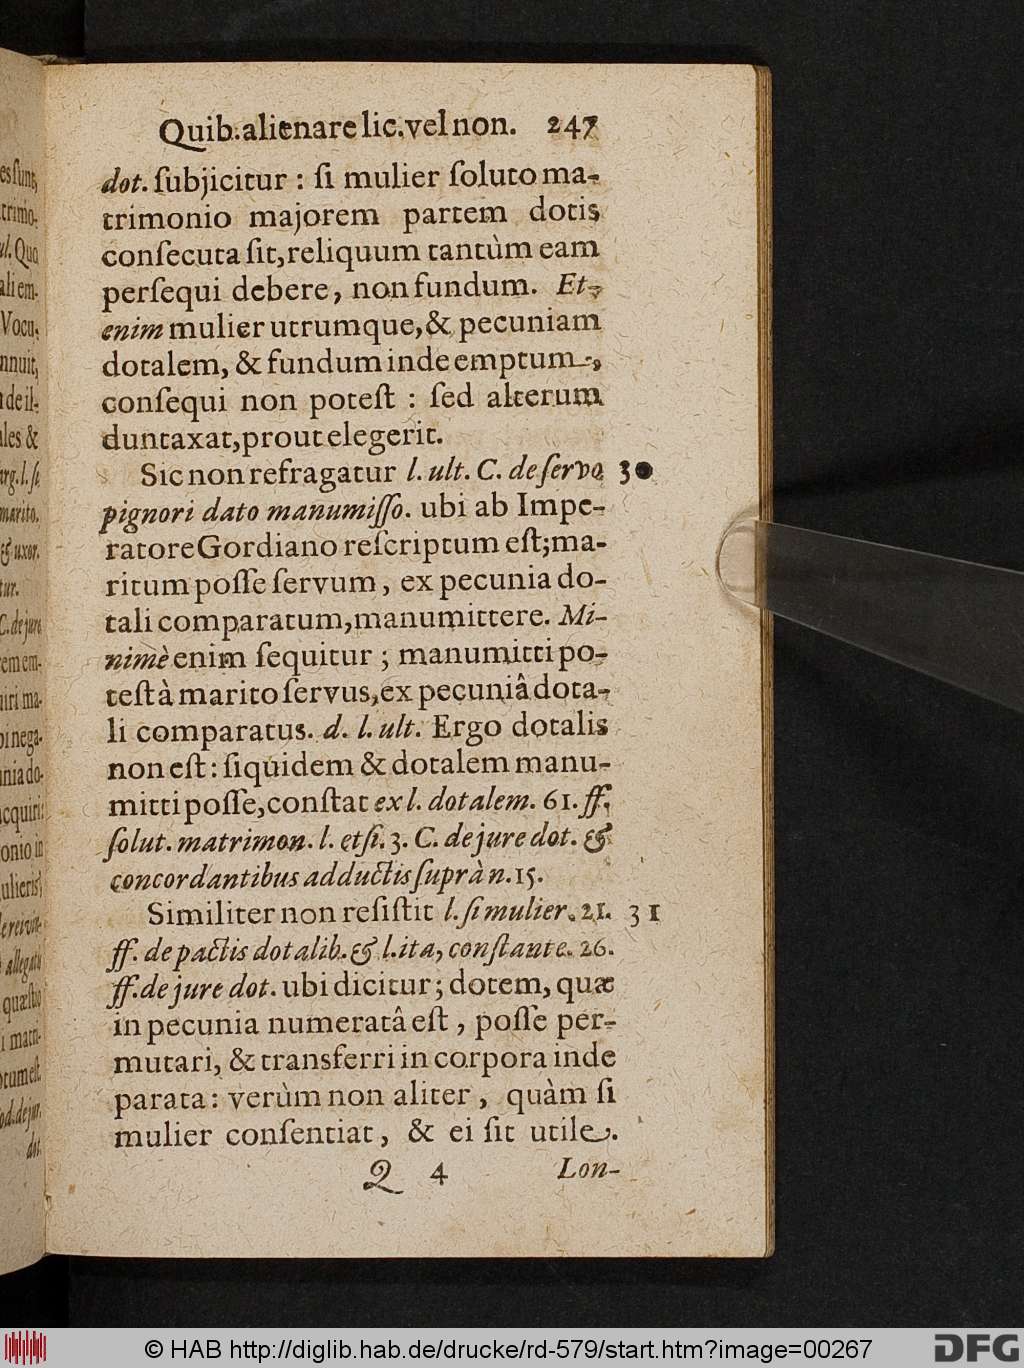 Quib. alienare lic. vel non. 247
dot. ſubjicitur : ſi mulier ſoluto ma-
trimonio majorem partem dotis
conſecuta ſit, reliquum tantùm eam
perſequi debere, non fundum. Et-
enim mulier utrumque, & pecuniam
dotalem, & fundum inde emptum,
conſequi non poteſt : ſed alterum
duntaxat, prout elegerit.
Sic non refragatur l. ult. C. de ſervo 30
pignori dato manumiſſo. ubi ab Impe-
ratore Gordiano reſcriptum eſt; ma-
ritum poſſe ſervum, ex pecunia do-
tali comparatum, manumittere. Mi-
nimè enim ſequitur ; manumitti po-
teſt à marito ſervus, ex pecuniâ dota-
li comparatus. d. l. ult. Ergo dotalis
non eſt : ſiquidem & dotalem manu-
mitti poſſe, conſtat ex l. dotalem. 61. ff.
ſolut. matrimon. l. etſi. 3. C. de jure dot. &
concordantibus adductis ſuprà n. 15.
Similiter non reſiſtit l. ſi mulier. 21. 31
ff. de pactis dotalib. & l. ita, conſtante. 26.
ff. de jure dot. ubi dicitur; dotem, quæ
in pecunia numeratâ eſt, poſſe per-
mutari, & transferri in corpora inde
parata : verùm non aliter, quàm ſi
mulier conſentiat, & ei ſit utile.
Q 4 Lon-
© HAB http://diglib.hab.de/drucke/rd-579/start.htm?image=00267
DFG